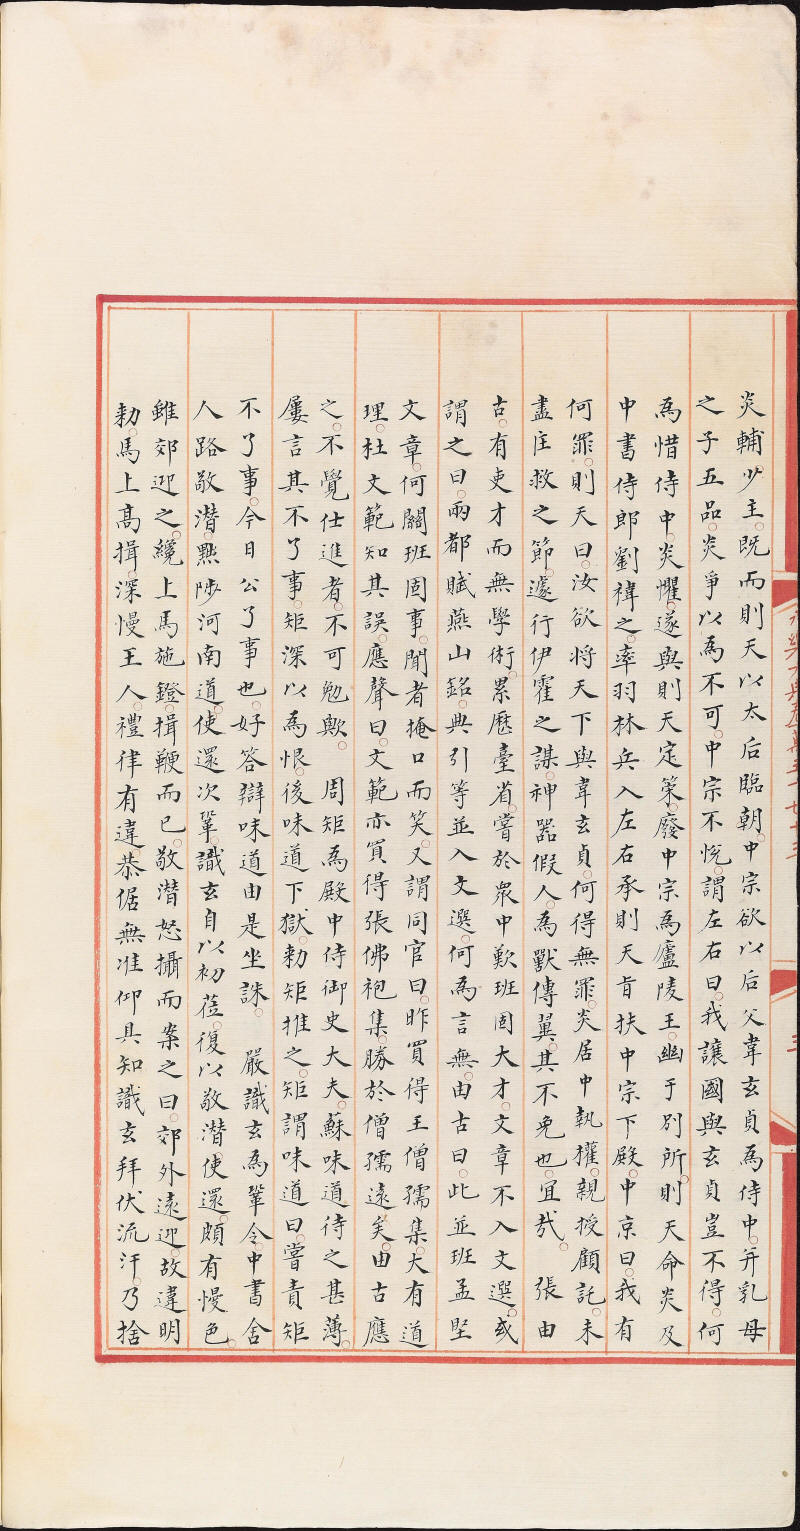 炎輔少主。既而則天以太后臨朝。中宗欲以后父韋玄貞為侍中。并乳母
之子五品。炎爭以為不可。中宗不悅。謂左右曰。我讓國與玄貞豈不得。何
為惜侍中。炎懼。遂與則天定策。廢中宗為廬陵王。幽于別所。則天命炎及
中書侍郎劉禕之。率羽林兵入左右承則天旨扶中宗下殿。中京曰。我有
何罪。則天曰。汝欲將天下與韋玄貞。何得無罪。炎居中執權。親授顧託。未
盡匡救之節。遽行伊霍之謀。神器假人。為獸傳翼。其不免也。宜哉。　張由
古。有吏才而無學術。累歷臺省。嘗於眾中歎班固大才。文章不入文選。或
謂之曰。兩都賦燕山銘。典引等並入文選。何為言無。由古曰。此並班孟堅
文章。何關班固事。聞者掩口而笑。又謂同官曰。昨買得王僧孺集。大有道
理。杜文範知其誤。應聲曰。文範亦買得張佛袍集。勝於僧孺遠矣。由古應
之。不覺仕進者。不可勉歟。　周矩為殿中侍御史大夫。蘇味道待之甚薄。
屢言其不了事。矩深以為恨。後味道下獄。勑矩推之。矩謂味道曰。嘗責矩
不了事。今日公了事也。好答辯味道由是坐誅。　嚴識玄為鞏令。中書舍
人路敬潛。黜陟河南道。使還次鞏。識玄自以初莅。復以敬潛使還。頗有慢色。
雖郊迎之。纔上馬施鐙。揖鞭而已。敬潛怒攝而案之曰。郊外遠迎。故違明
勑。馬上高揖。深慢王人。禮律有違。恭倨無准仰具知識玄拜伏流汗。乃捨